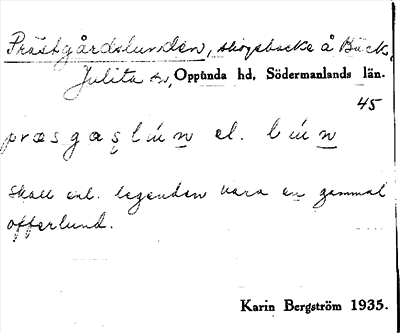 Prästgårdslunden, skogsbacke å Bäck,
Julita sn, Oppunda hd, Södermanlands län.
45
præsgaṣlún el. lún
Skall enl. legenden vara en gammal
offerlund.
Karin Bergström 1935.